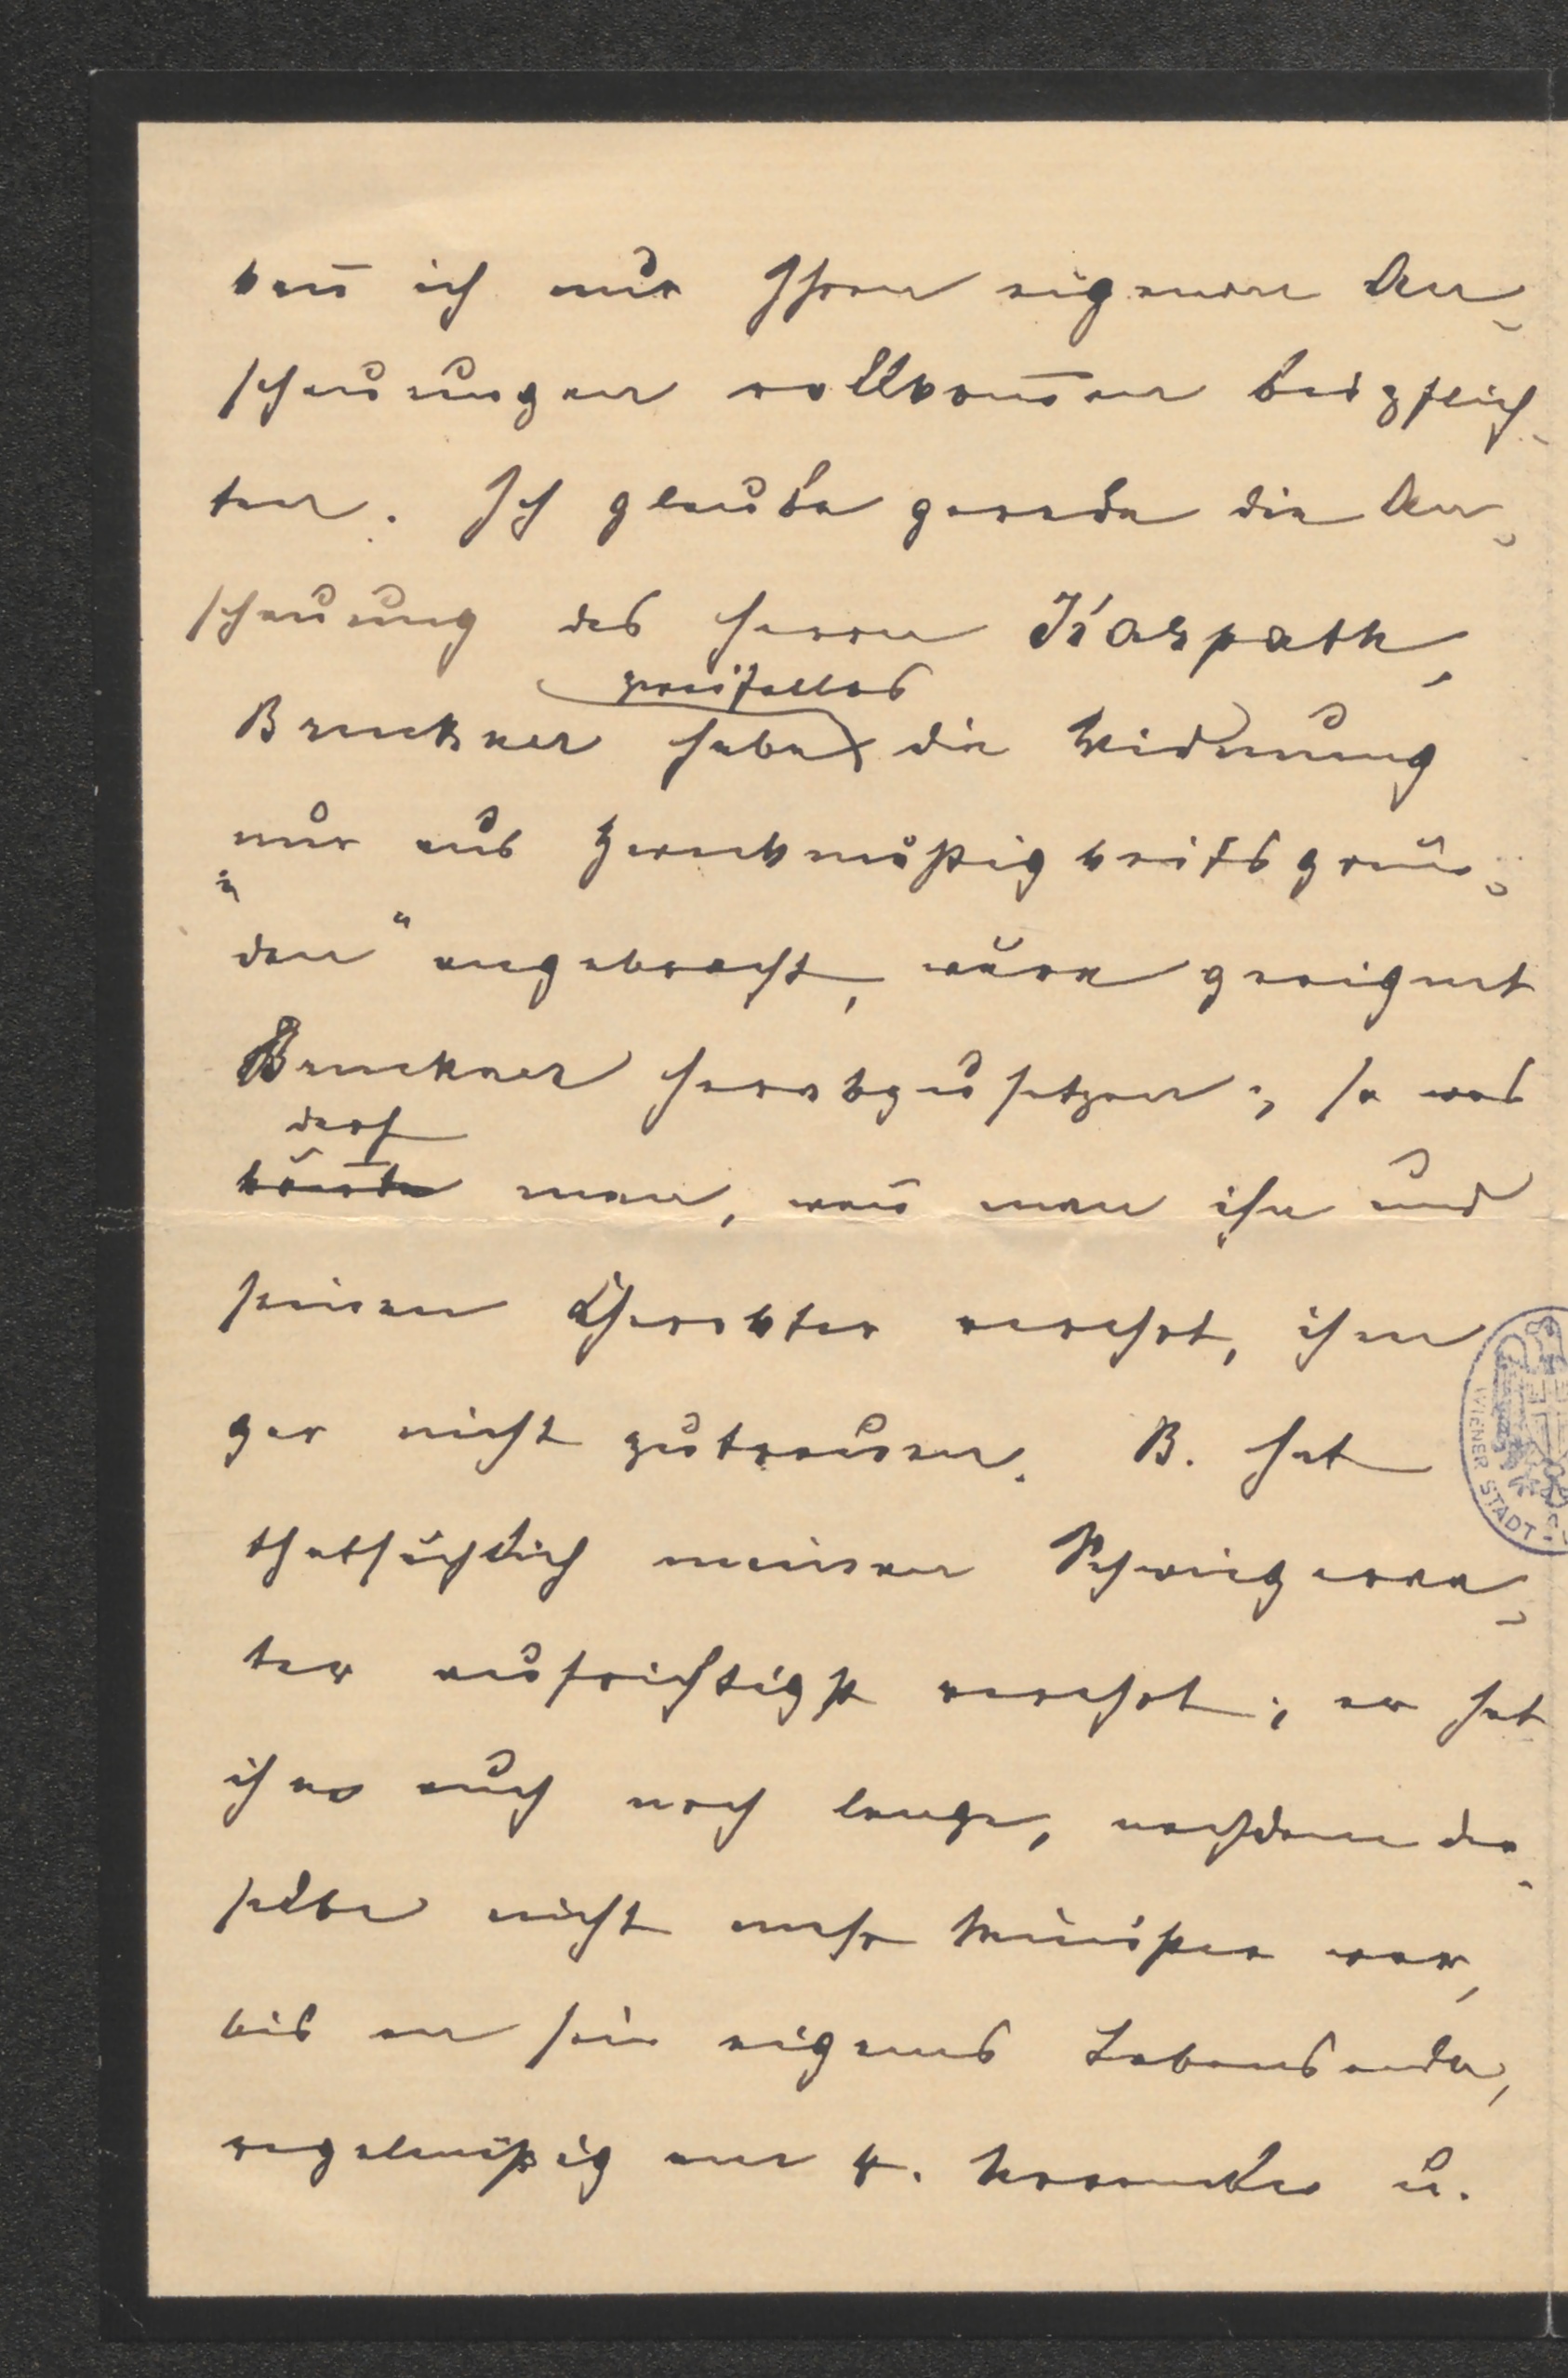 kan̄ ich nur Ihren eigenen An-
schauungen vollkom̄en beipflich-
ten. Ich glaube gerade die An-
schauung des Herrn Karpath,
zweifellos
Bruckner habe die Widmung
nur aus Zweckmäßigkeitsgrün-
den" angebracht, wäre geeignet
Bruckner herabzusetzen; so was
darf
kön̄te man, wen̄ man ihn und
seinen Charakter verehrt, ihm
gar nicht zutrauen. B. hat
thatsächlich meinen Schwiegerva-
ter aufrichtigst verehrt; er hat
ihn auch noch lange, nachdem der-
selbe nicht mehr Minister war,
bis an sein eigenes Lebensende,
regelmäßig am 4. November u.
WIENER STADT-